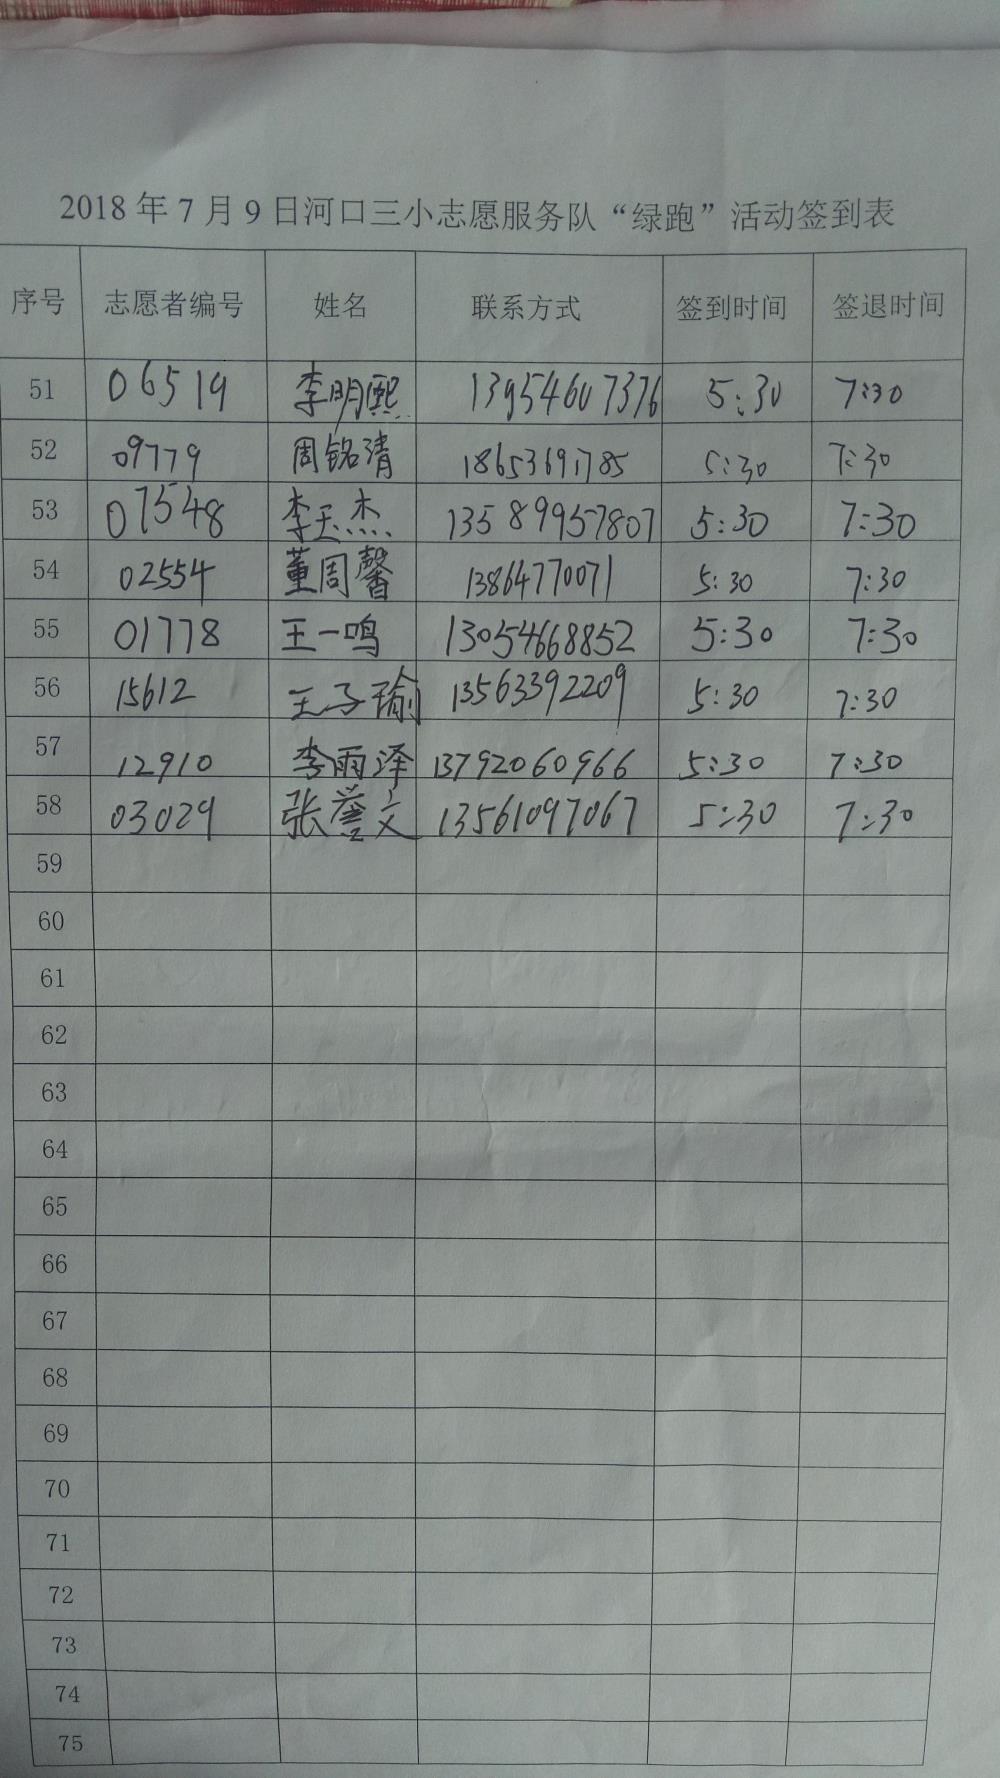 2018年7月9日河口三小志愿服务队“绿跑”活动签到表
序号 志愿者编号 姓名 联系方式 签到时间 签退时间
51 06519 李明熙 13954607376 5:30 7:30
52 09779 周铭清 18653691785 5:30 7:30
53 07548 李玉杰 13589957807 5:30 7:30
54 02554 董周馨 13864770071 5:30 7:30
55 01778 王一鸣 13054668852 5:30 7:30
56 15612 王子瑜 13563392209 5:30 7:30
57 12910 李雨泽 13792060966 5:30 7:30
58 03029 张誉文 13561097067 5:30 7:30
59
60
61
62
63
64
65
66
67
68
69
70
71
72
73
74
75